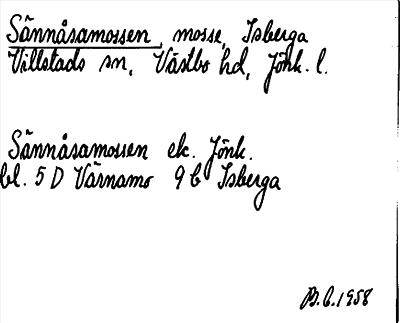 Sännåsamossen, mosse, Isberga
Villstads sn, Västbo hd, Jönk. l.
Sännåsamossen ek. Jönk.
bl. 5 D Värnamo 9 b Isberga
B.C. 1958